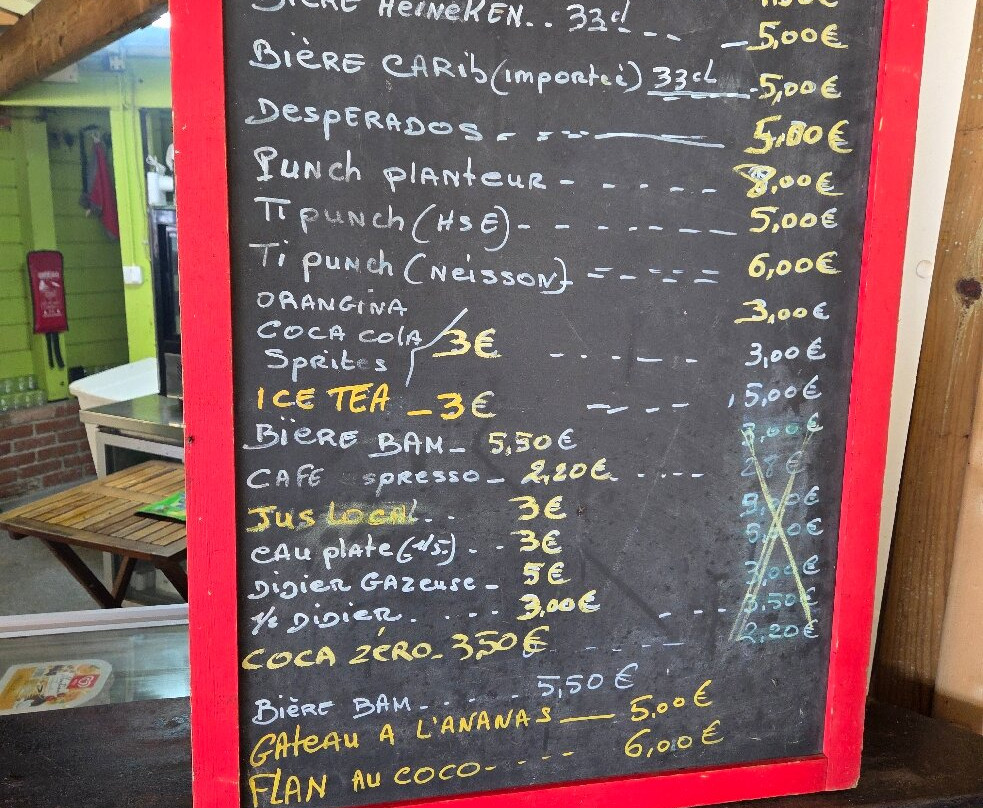 BIÈRE HEINEKEN.. 33cl ---- 5,00€
BIÈRE CARib (importeè) 33cL 5,00€
DESPERADOS 5,00€
PUNCH PLANTEUR - - - - - 8,00€
Ti PUNCH (HSE) - - - - - 5,00€
Ti PUNCH (NEISSON) 6,00€
ORANGINA 3,00€
COCA COLA 3€ - - - - - 3,00€
Sprites
ICE TEA - 3€ - - - - 5,00€
BIÈRE BAM - 5,50€ 3,00€
CAFE spresso - 2,20€ .... 28€
JUS LOCAL .. 3€
EAU PLATE (1/5) .. 3€
DIDIER GAZEUSE - 5€ 3,00€
1/2 DIDIER .... 3,00€ 3,50€
COCA ZÉRO - 3,50€ 2,20€
BIÈRE BAM .... 5,50€
GATEAU A L'ANANAS — 5,00€
FLAN AU COCO - - - - 6,00€